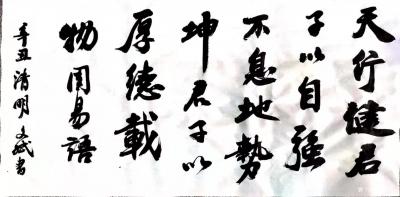 天行健君
子以自強
不息地勢
坤君子以
厚德載
物周易語
辛丑清明文斌書